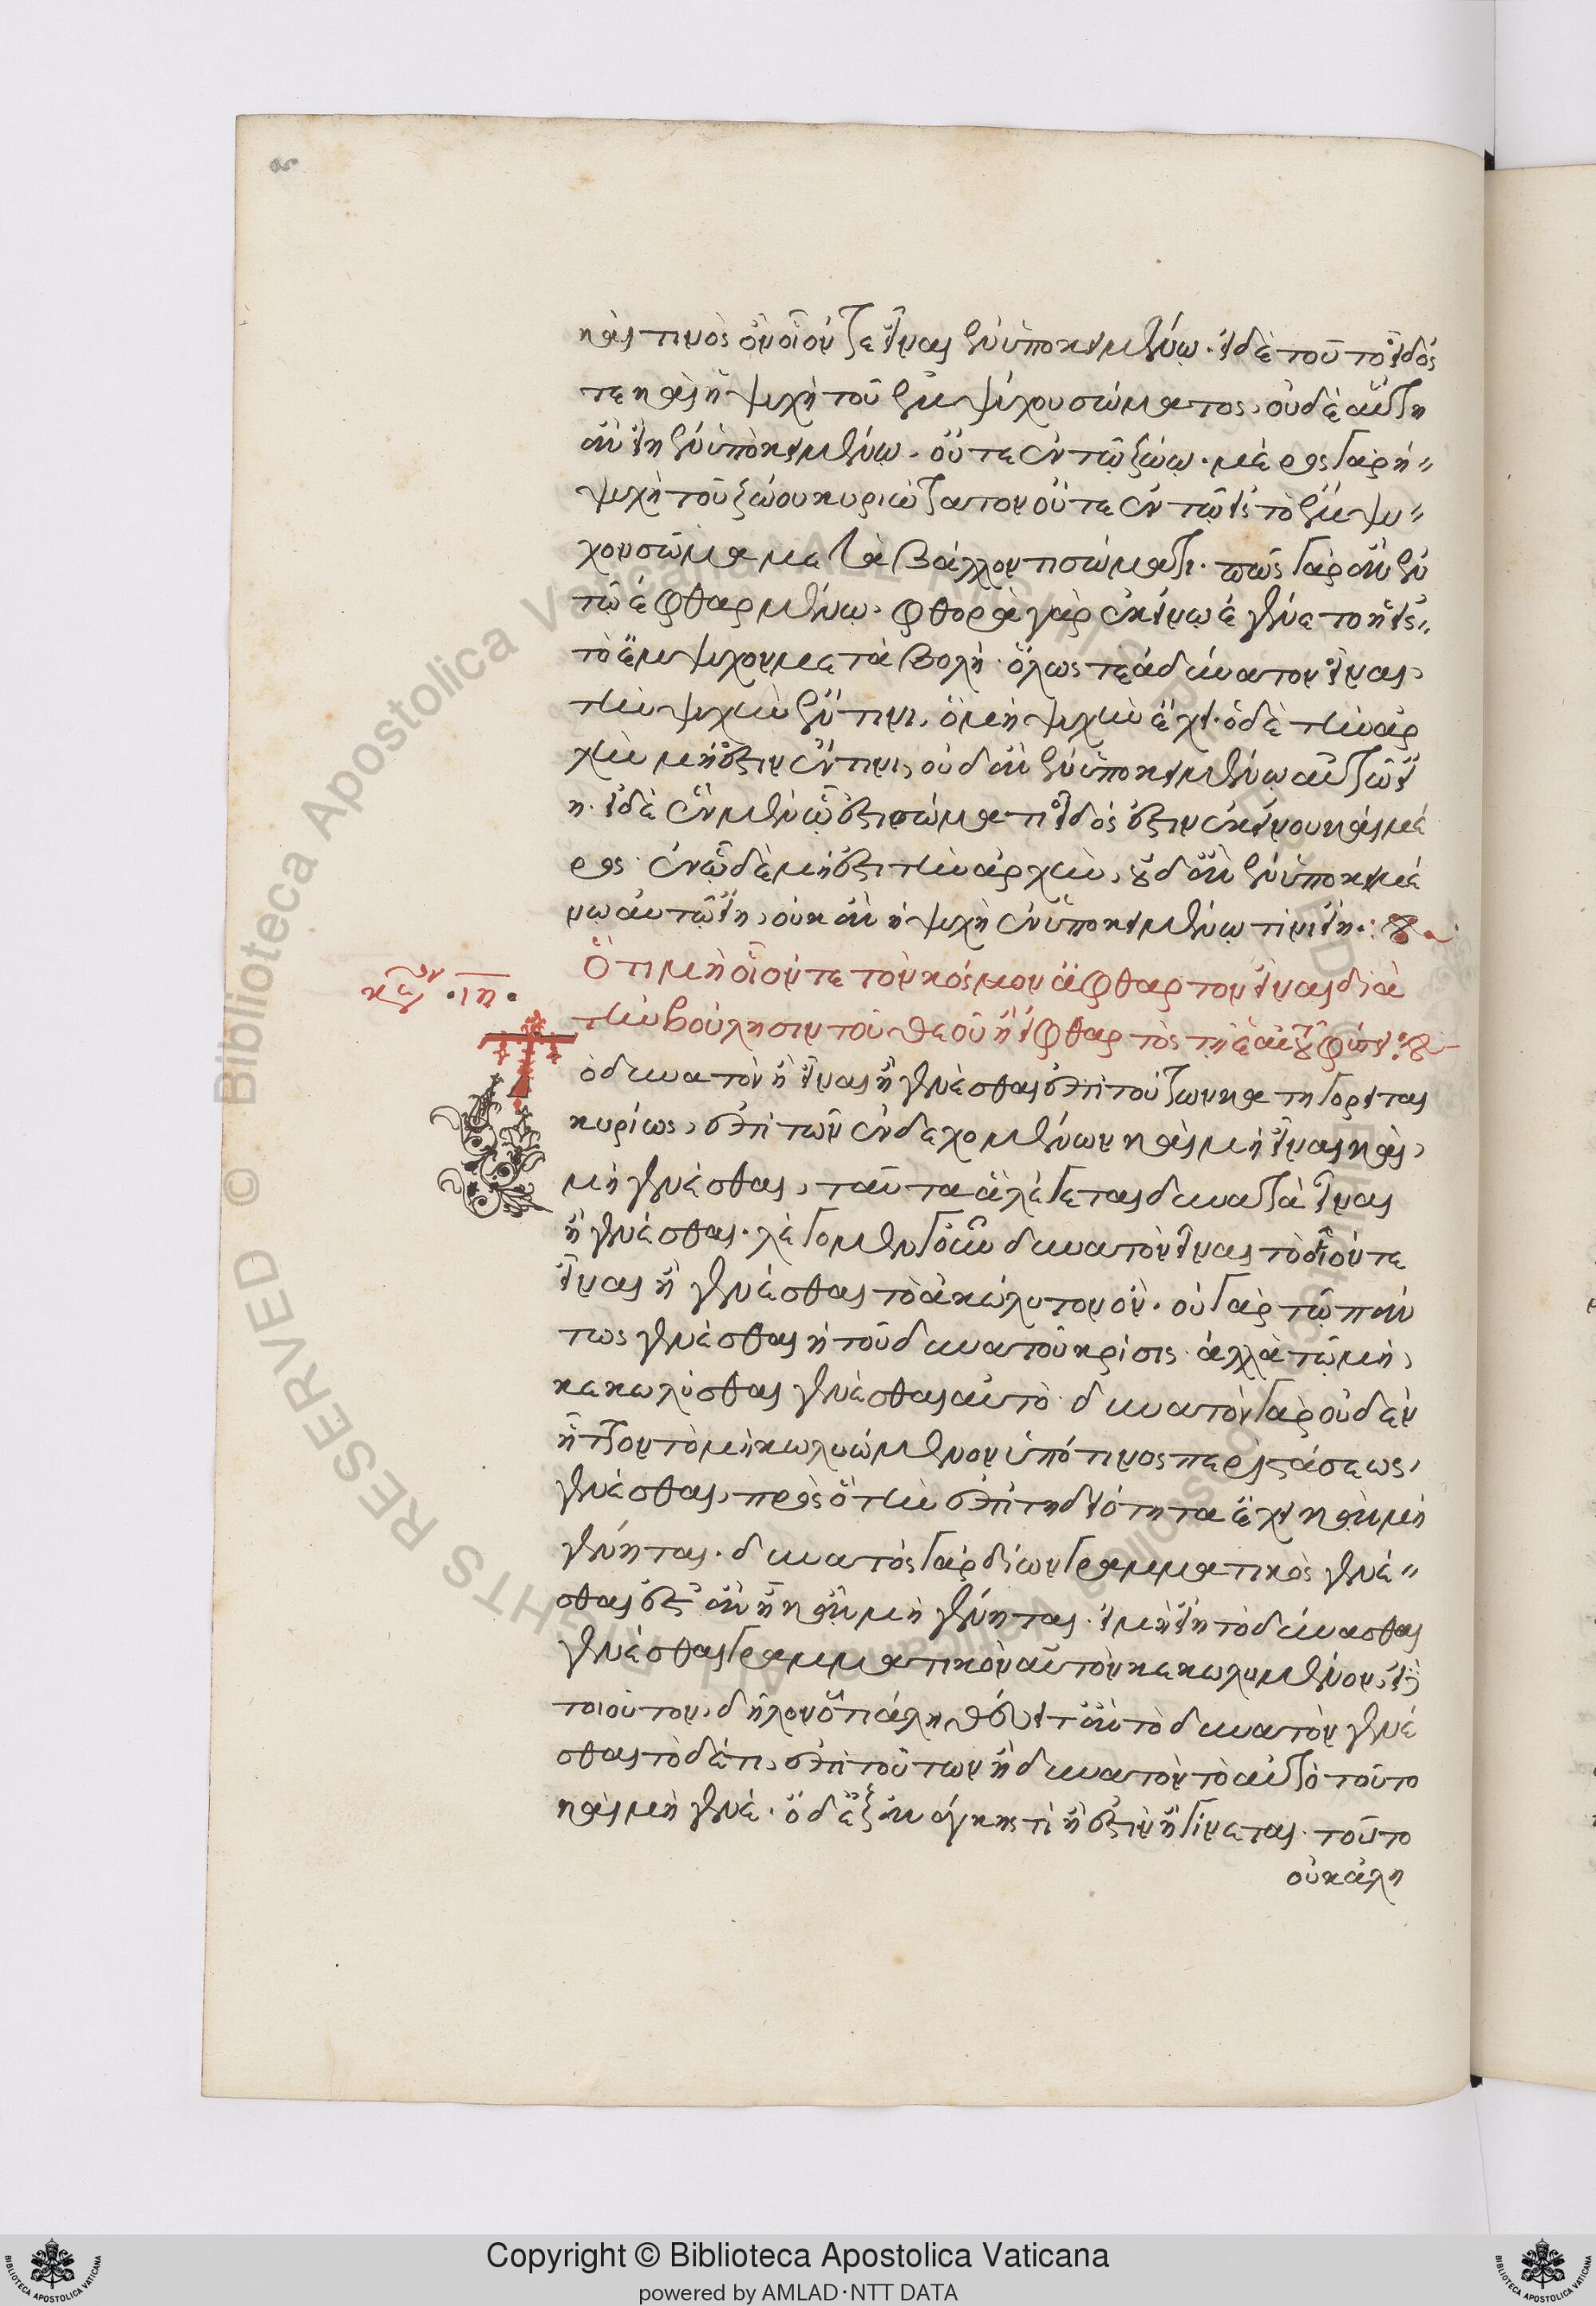 καὶ τινὸς ὂν οἷόν τε εἶναι ἐν ὑποκειμένῳ. εἰ δὲ τοῦτο εἶδός
τε καὶ ἡ ψυχὴ τοῦ ἐμψύχου σώματος, οὐδὲ αὕτη
ἂν εἴη ἐν ὑποκειμένῳ. οὔτε ἐν τῷ ζώῳ. μέρος γὰρ ἡ
ψυχὴ τοῦ ζώου κυριώτατον οὔτε ἐν τῷ εἰς τὸ ἔμψυ
χον σῶμα μεταβάλλοντι σώματι. πῶς γὰρ ἂν ἐν
τῷ ἐφθαρμένῳ. φθορὰ γὰρ ἐκείνῳ ἐγένετο ἡ εἰς
τὸ ἔμψυχον μεταβολή. ὅλως τε ἀδύνατον εἶναι,
τὴν ψυχὴν ἔν τινι, ὃ μὴ ψυχὴν ἔχει. ὃ δὲ τὴν ἀρ
χὴν μή ἐστιν ἔν τινι, οὐδ' ἂν ἐν ὑποκειμένῳ αὐτῷ εἴ
η. εἰ δὲ ἐν μὲν ᾧ ἐστι σώματι εἶδός ἐστιν ἐκείνου καὶ μέ
ρος. ἐν ᾧ δὲ μή ἐστι τὴν ἀρχὴν, οὐδ' ἂν ἐν ὑποκειμέ
νῳ αὐτῷ εἴη, οὐκ ἂν ἡ ψυχὴ ἐν ὑποκειμένῳ τινι εἴη.
Ὅτι μὴ οἷόν τε τὸν κόσμον ἄφθαρτον εἶναι διὰ
τὴν βούλησιν τοῦ θεοῦ ἢ εἰ φθαρτὸς τῇ ἑαυτοῦ φύσει
.ιη.
Τὸ δυνατὸν ἢ εἶναι ἢ γενέσθαι ἐπὶ τούτων κατηγορεῖται
κυρίως, ἐπὶ τῶν ἐνδεχομένων καὶ μὴ εἶναι καὶ,
μὴ γενέσθαι, ταῦτα ἃ λέγεται δυνατὰ εἶναι
ἢ γενέσθαι. λέγομεν γοῦν δυνατὸν εἶναι τὸ οἷόν τε
εἶναι ἢ γενέσθαι τὸ ἀκώλυτον ὄν. οὐ γὰρ τῷ πάν
τως γενέσθαι ἡ τοῦ δυνατοῦ κρίσις. ἀλλὰ τῷ μὴ,
κεκωλῦσθαι γενέσθαι αὐτό. δυνατὸν γὰρ οὐδὲν
ἧττον τὸ μὴ κωλυώμενον ὑπό τινος περιστάσεως,
γενέσθαι, πρὸς ὃ τὴν ἐπιτηδειότητα ἔχει κἂν μὴ
γένηται. δυνατὸς γὰρ δίων γραμματικὸς γενέ
σθαι ἔστ' ἂν ᾖ κἂν μὴ γένηται. εἰ μὴ εἴη τὸ δύνασθαι
γενέσθαι γραμματικὸν αὐτὸν κεκωλυμένον, εἰ
τοιοῦτον, δῆλον ὅτι ἀληθεύει τ' ἂν τὸ δυνατὸν γενέ
σθαι τὸ δέ τι, ἐπὶ τούτων ᾗ δυνατὸν τὸ αὐτὸ τοῦτο
καὶ μὴ γενέ. ὃ δ' ἐξ ἀνάγκης τι ἢ ἔστιν ἢ γίνεται. τοῦτο
οὐκ ἀλη